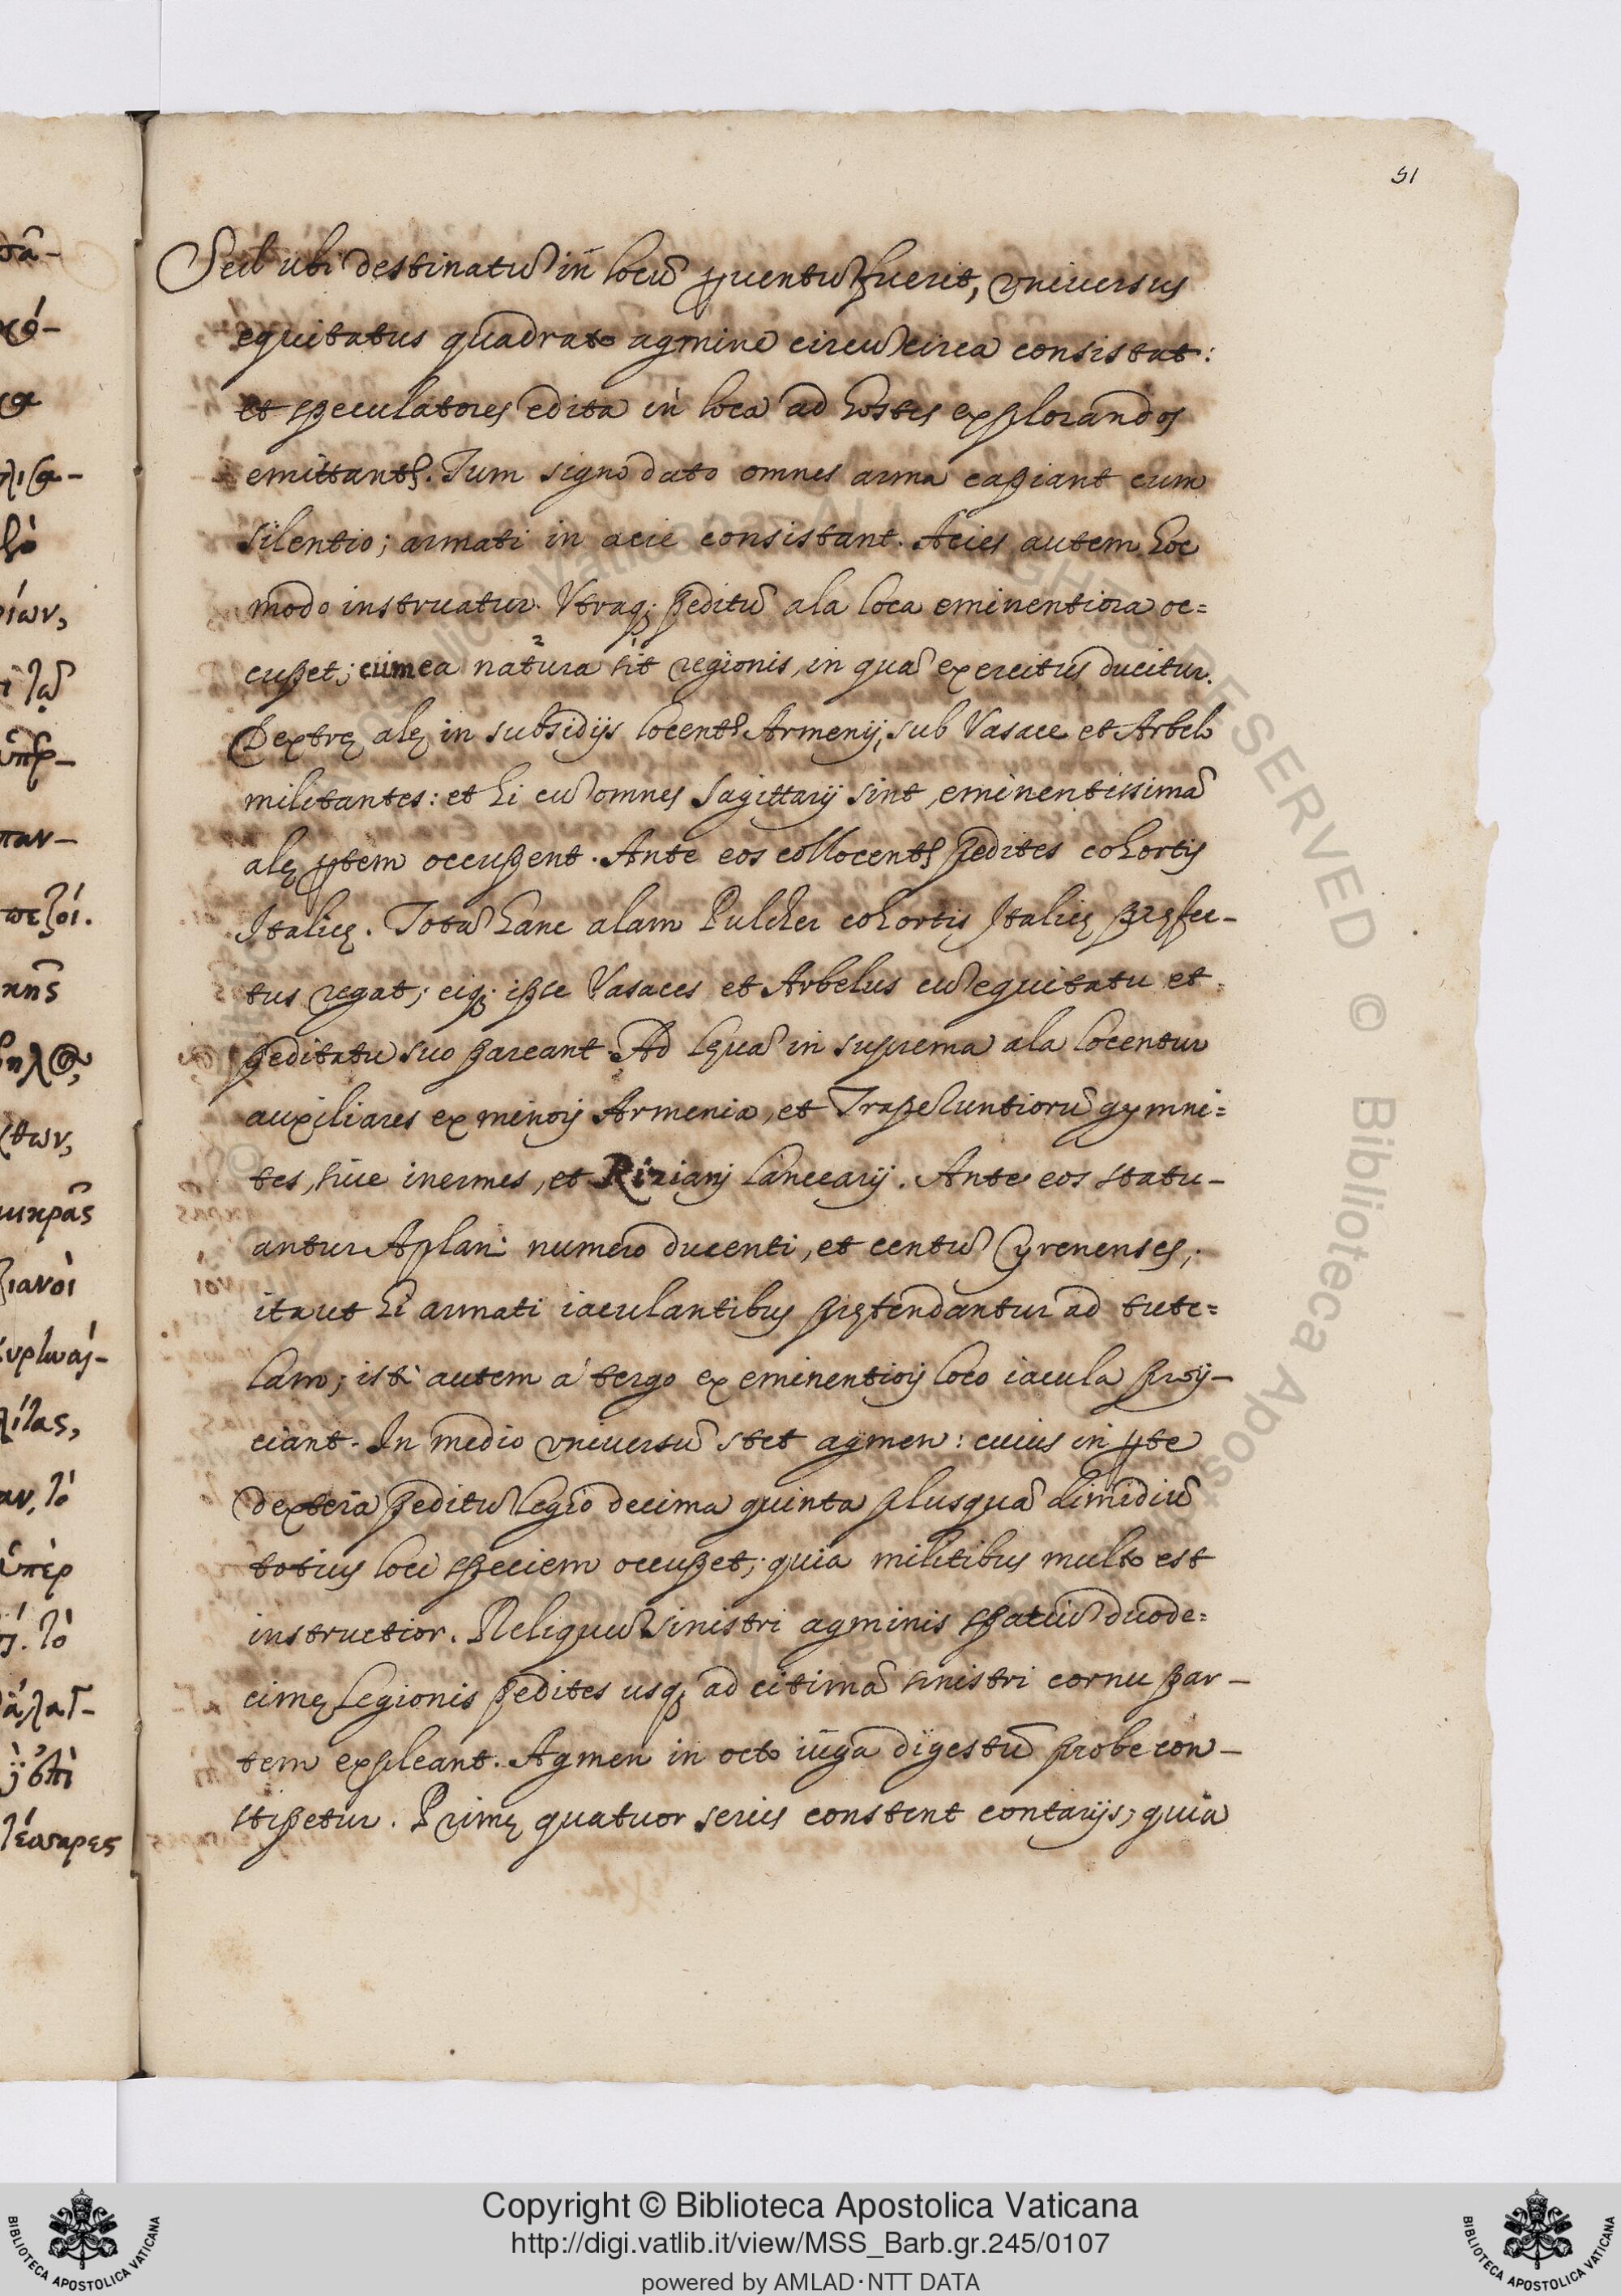 51
σᾶ-
ύπὲρ
παν-
πεζοί.
κῆς
ίων,
μικρᾶς
ζιανοὶ
ὑπὲρ
τέσσαρες
Sed ubi destinatũ in locũ ꝑuentũ fuerit, vniuersus
equitatus quadrato agmine circũ circa consistat:
et speculatores edita in loca ad hostes explorandos
emittantr. Tum signo dato omnes arma capiant cum
silentio; armati in acie consistant. Acies autem hoc
modo instruatur. Vtraq; peditũ ala loca eminentiora oc=
cupet; cum ea natura sit regionis, in quã exercitus ducitur.
Dextrę alę in subsidijs locentr Armenij, sub Vasace et Arbelo
militantes: et hi cũ omnes sagittarij sint, eminentissimã
alę ꝑtem occupent. Ante eos collocentr pedites cohortis
Italicę. Totã hanc alam Pulcher cohortis Italicę pręfec-
tus regat; eiq; ipse Vasaces et Arbelus cũ equitatu et
peditatu suo pareant. Ad lęuã in suprema ala locentur
auxiliares ex minori Armenia, et Trapehuntiorũ gymni=
tes, siue inermes, et Riziani lancearij. Ante eos statu-
antur Aplani numero ducenti, et centũ Cyrenenses;
ita ut hi armati iaculantibus prętendantur ad tute=
lam; isti autem à tergo ex eminentiori loco iacula proij-
ciant. In medio vniuersũ stet agmen: cuius in ꝑte
dextera peditũ legio decima quinta plusquã dimidiũ
totius loci speciem occupet; quia militibus multo est
instructior. Reliquũ sinistri agminis spatiũ duode=
cimę legionis pedites usq; ad citimã sinistri cornu par-
tem expleant. Agmen in octo iuga digestũ probe con-
stipetur. Primę quatuor series constent contarijs; quia
© Biblioteca Apostolica Vaticana
BIBLIOTECA APOSTOLICA VATICANA
Copyright © Biblioteca Apostolica Vaticana
http://digi.vatlib.it/view/MSS_Barb.gr.245/0107
powered by AMLAD·NTT DATA
BIBLIOTECA APOSTOLICA VATICANA